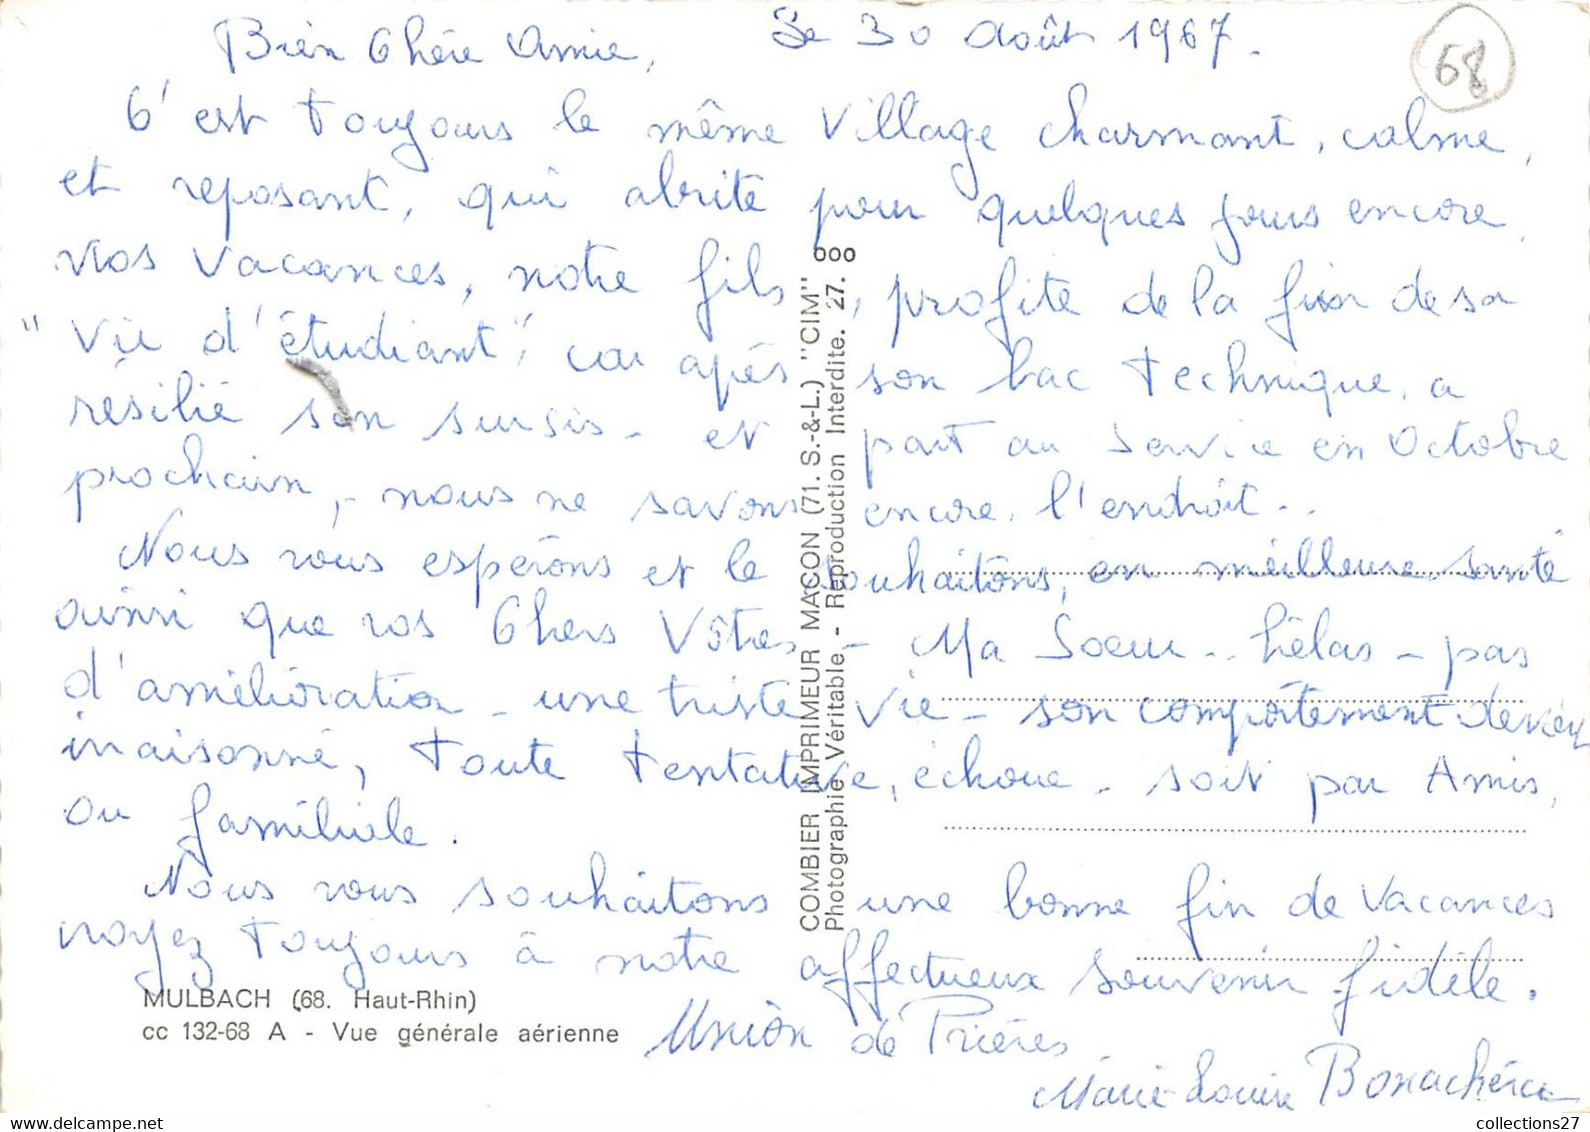 Le 30 Août 1967.
68
Bien Chère Amie,
C'est toujours le même village charmant, calme,
et reposant, qui abrite pour quelques jours encore,
nos vacances, notre fils, profite de la fin de sa
"vie d'étudiant", car après son bac technique, a
résilié son sursis - et part au service en Octobre
prochain, - nous ne savons encore, l'endroit..
Nous vous espérons et le souhaitons, en meilleure santé
ainsi que vos Chers Vôtres - Ma Soeur .. hélas - pas
d'amélioration - une triste vie - son comportement
iraisonné, toute tentative, échoue - soit par Amis,
ou familiale.
Nous vous souhaitons une bonne fin de vacances
croyez toujours à notre affectueux souvenir fidèle.
Union de Prières
Marie-Louise
MULBACH (68. Haut-Rhin)
cc 132-68 A - Vue générale aérienne
COMBIER IMPRIMEUR MACON (71. S.-&-L.) "CIM"
Photographie Véritable - Reproduction Interdite. 27. 000
collections27